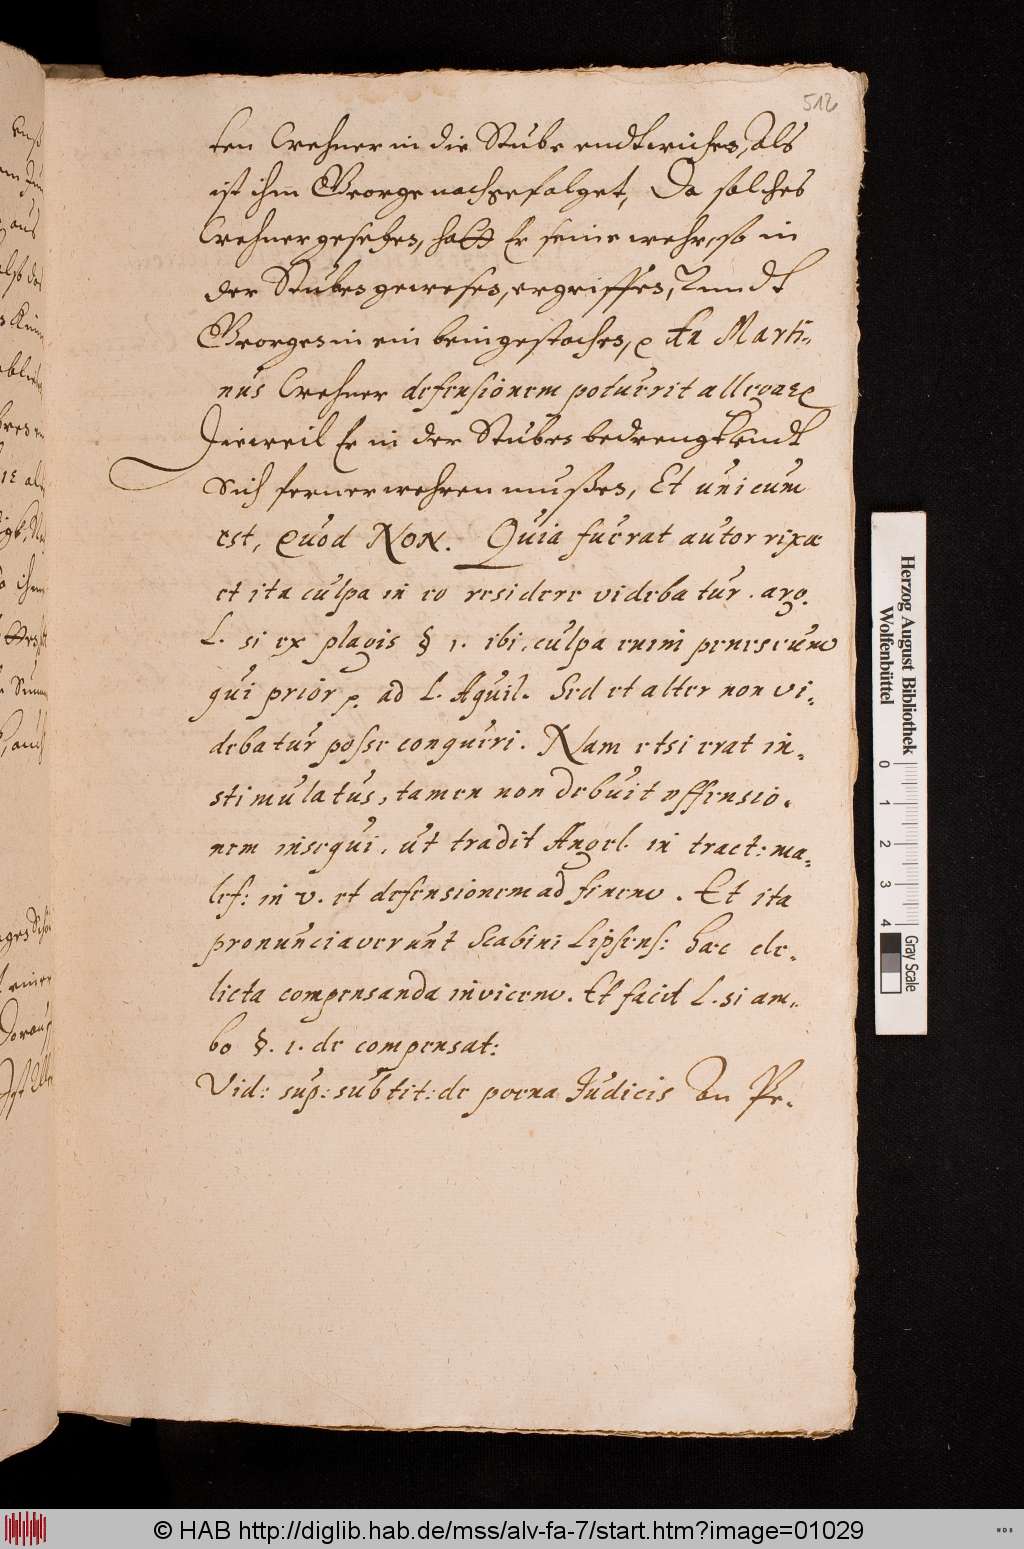 512
ten Crehner in die Stube endtwichen, Als
ist ihm George nachgefolget, Da solches
Crehner gesehen, hatt Er seine wehr, so in
der Stuben gewesen, ergriffen, Vnndt
Georgen in ein bein gestochen, An Marti-
nus Crehner defensionem potuerit allegare
Dieweil Er in der Stuben bedrengt Undt
Sich ferner wehren mußen, Et unicum
est, quod NON. Quia fuerat autor rixae
et ita culpa in eo residere videbatur. arg.
L. si ex plagis § 1. ibi, culpa enim penes eum
qui prior p. ad L. Aquil. Sed et alter non vi-
debatur posse conqueri. Nam etsi erat in-
stimulatus, tamen non debuit offensio-
nem insequi, ut tradit Angel. in tract: ma-
lef: in v. et defensionem ad finem. Et ita
pronunciaverunt Scabini Lipsens: haec de-
licta compensanda invicem. Et facit L. si am-
bo §. 1. de compensat:
Vid: sup: sub tit: de poena Judicis An Pe-
Herzog August Bibliothek
Wolfenbüttel
0 1 2 3 4
Gray Scale
© HAB http://diglib.hab.de/mss/alv-fa-7/start.htm?image=01029